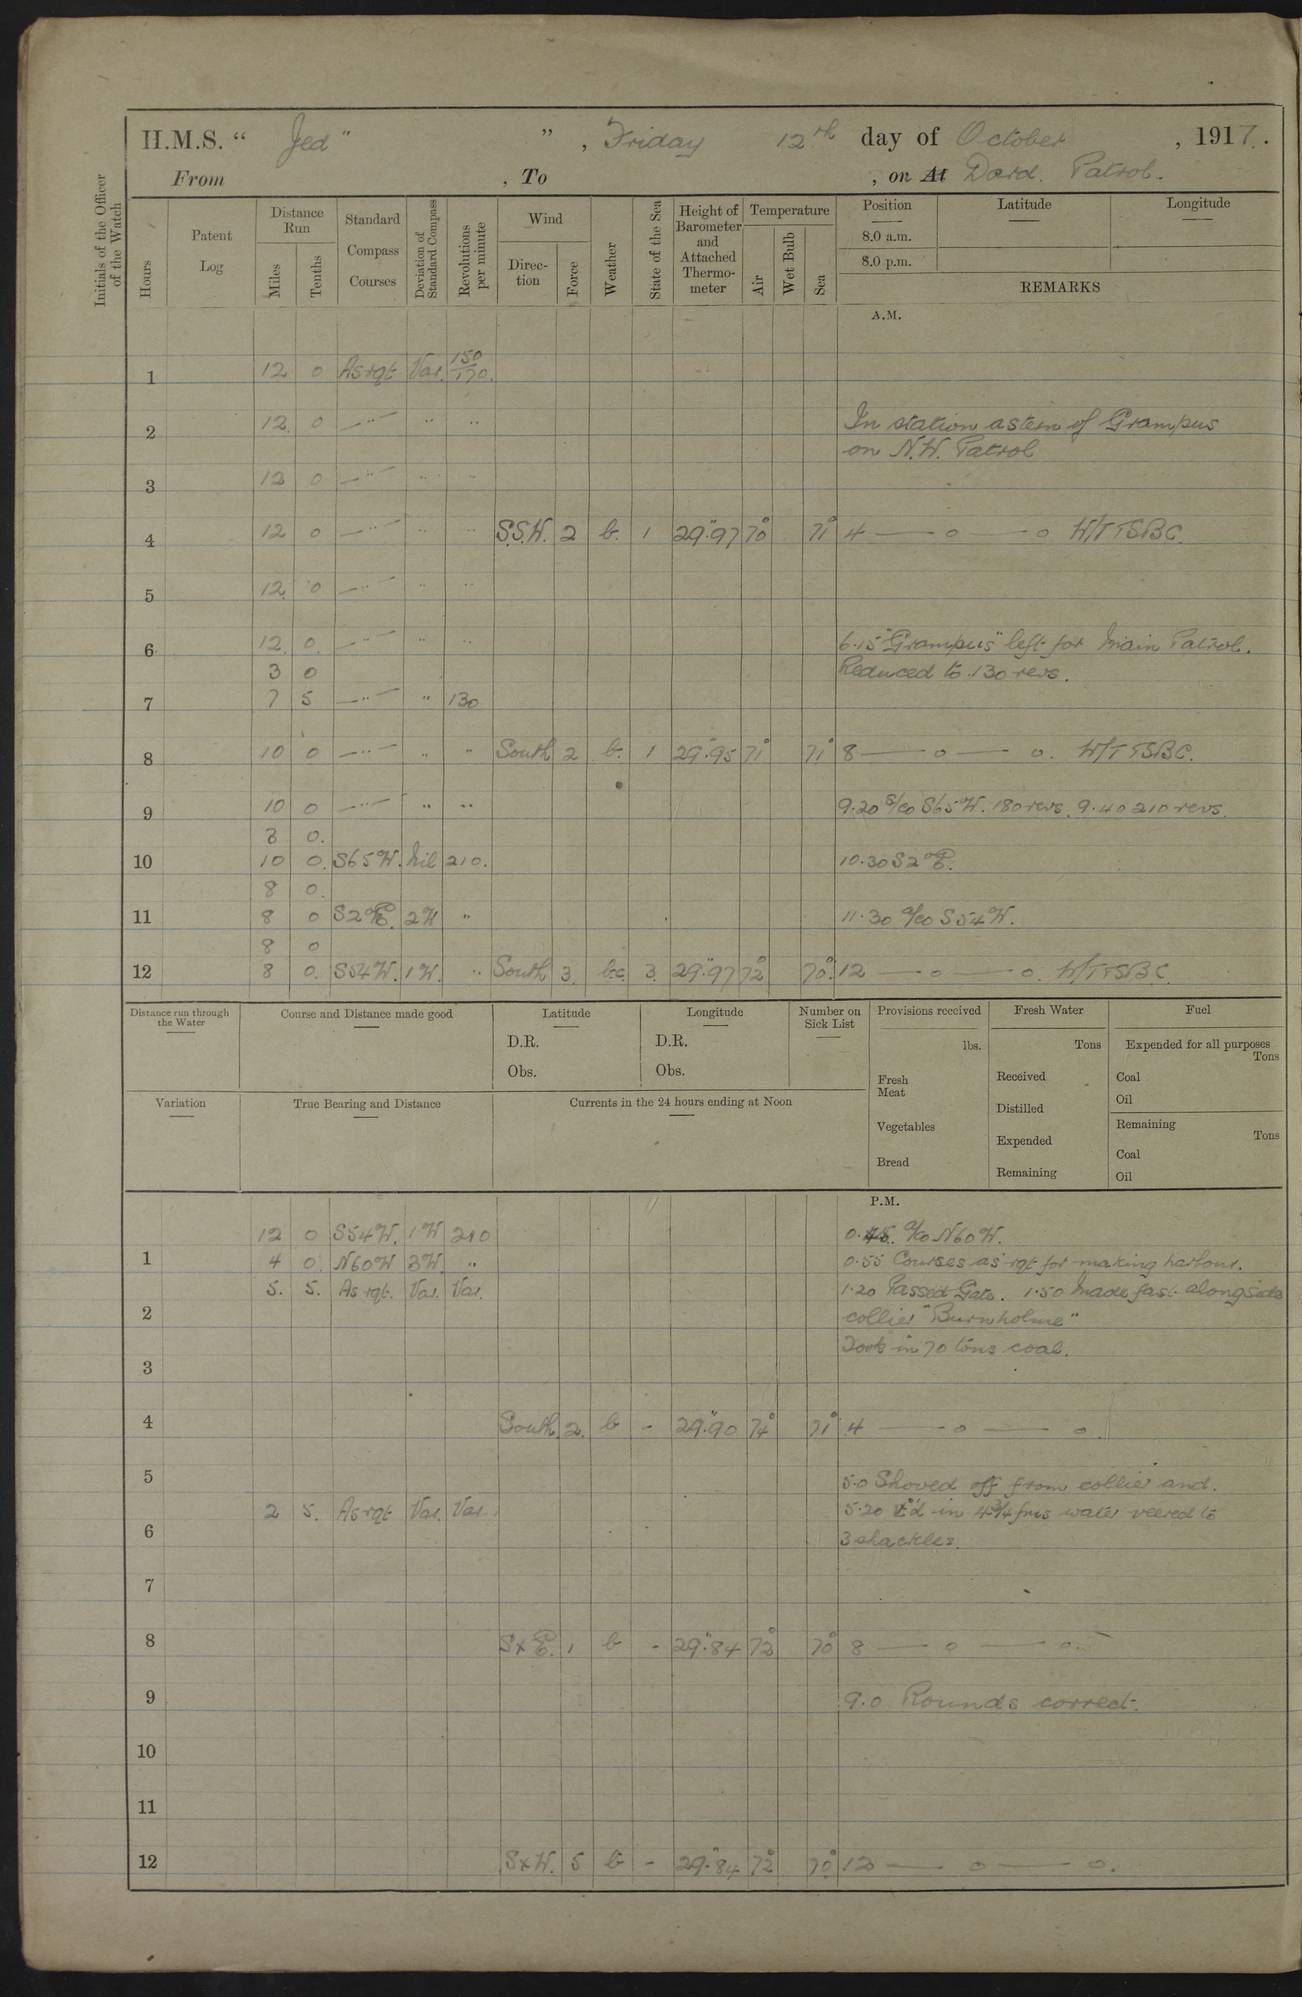 H.M.S. " Jed " ", Friday 12th day of October, 1917.
From , To , on At Dard. Patrol.
Initials of the Officer of the Watch
Hours
Patent Log
Distance Run
Miles
Tenths
Standard Compass Courses
Deviation of Standard Compass
Revolutions per minute
Wind
Direction
Force
Weather
State of the Sea
Height of Barometer and Attached Thermometer
Temperature
Air
Wet Bulb
Sea
Position Latitude Longitude
8.0 a.m.
8.0 p.m.
REMARKS
A.M.
1 12 0 As rqt Var. 150/170.
2 12 0 — " — " " In station astern of Grampus
on N.W. Patrol
3 12 0 — " — " "
4 12 0 — " — " " S.S.W. 2 b. 1 29".97 70° 71° 4 — o — o W/T TSBC.
5 12 0 — " — " "
6 12 0 — " — " " 6.15 "Grampus" left for Main Patrol.
3 0 Reduced to 130 revs.
7 7 5 — " — " 130
8 10 0 — " — " " South 2 b. 1 29".95 71° 71° 8 — o — o. W/T TSBC.
9 10 0 — " — " " 9.20 a/co S65W. 180 revs. 9.40 210 revs.
3 0.
10 10 0. S65W. Nil 210. 10.30 S2°E.
8 0.
11 8 0 S2°E. 2W " 11.30 a/co S54W.
8 0
12 8 0. S54W. 1W. " South 3. b.c. 3. 29".97 72° 70°. 12 — o — o. W/T TSBC.
Distance run through the Water
Course and Distance made good
Latitude
D.R.
Obs.
Longitude
D.R.
Obs.
Number on Sick List
Provisions received
lbs.
Fresh Meat
Vegetables
Bread
Fresh Water
Tons
Received
Distilled
Expended
Remaining
Fuel
Expended for all purposes
Tons
Coal
Oil
Remaining
Tons
Coal
Oil
Variation
True Bearing and Distance
Currents in the 24 hours ending at Noon
P.M.
12 0 S54W. 1W 210 a/co N60W.
1 4 0. N60W 3W. " 0.55 Courses as rqt for making harbour.
5. 5. As rqt. Var. Var. 1.20 Passed Gate. 1.50 Made fast alongside
2 collier "Burnholme"
Took in 70 tons coal.
3
4 South. 2. b - 29".90 74° 71° 4 — o — o.
5 5.0 Shoved off from collier and.
2 5. As rqt Var. Var. 5.20 in 4¾ fms water veered to
6 3 shackles.
7
8 SxE. 1 b - 29".84 72° 70° 8 — o — o.
9 9.0 Rounds correct.
10
11
12 SxW. 5 b - 29".84 72° 70° 12 — o — o.